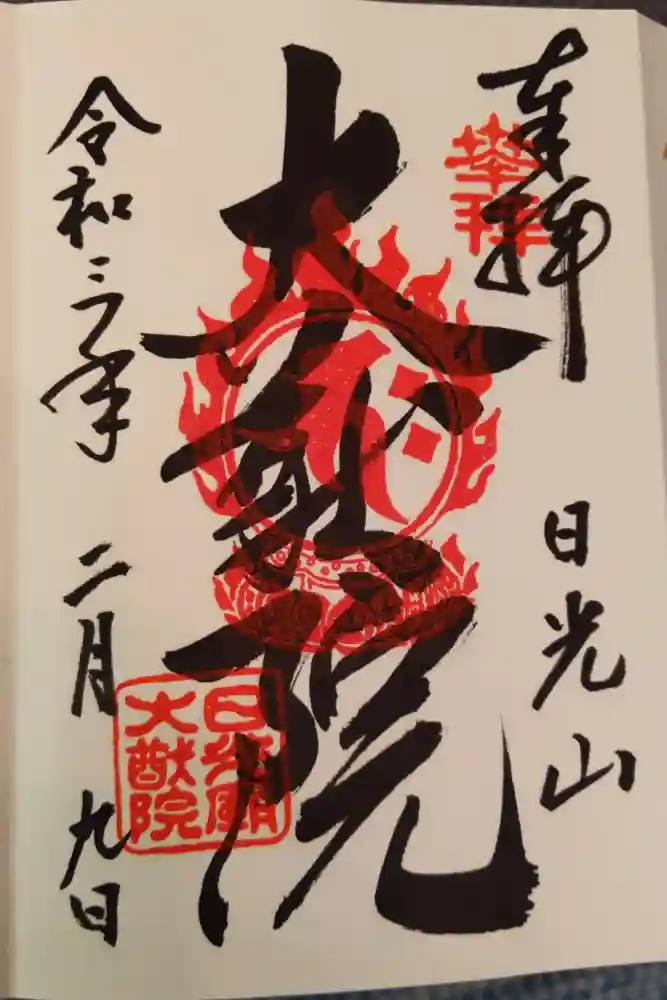 奉拝
奉拝
日光山
大猷院
日光廟
大猷院
令和三年
二月
九日